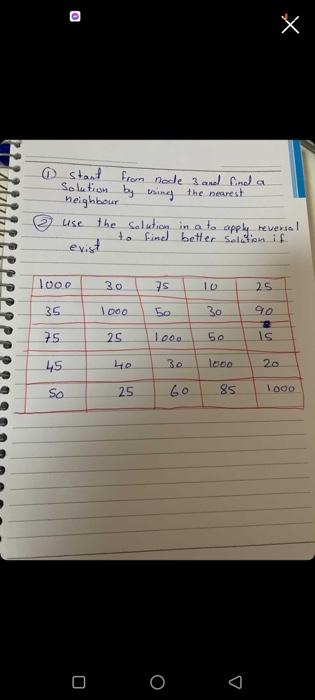 ① start from node 3 and find a
Solution by using the nearest
neighbour
② use the solution in a to apply reversal
to find better solution if
exist
1000 30 75 10 25
35 1000 50 30 90
75 25 1000 50 15
45 40 30 1000 20
50 25 60 85 1000